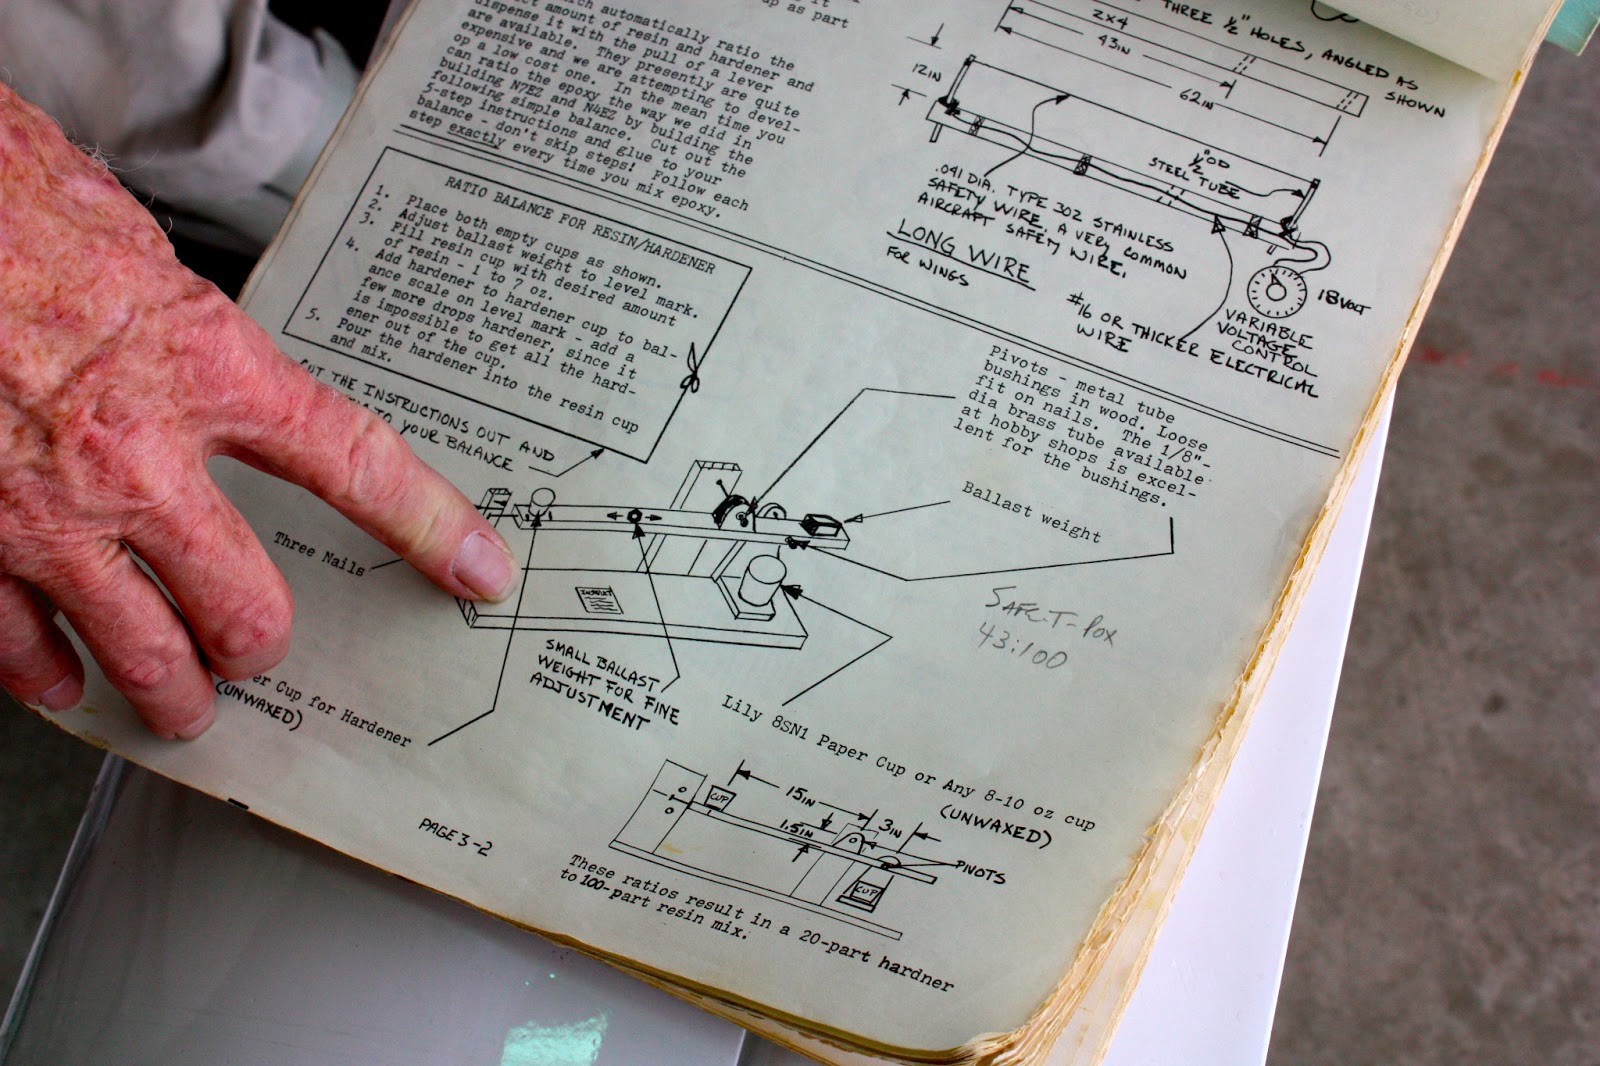 up as part
which automatically ratio the
amount of resin and hardener and
dispense it with the pull of a lever
are available. They presently are quite
expensive and we are attempting to devel-
op a low cost one. In the mean time you
can ratio the epoxy the way we did in
building N7EZ and N4EZ by building the
following simple balance. Cut out the
5-step instructions and glue to your
balance - don't skip steps! Follow each
step exactly every time you mix epoxy.
RATIO BALANCE FOR RESIN/HARDENER
1. Place both empty cups as shown.
2. Adjust ballast weight to level mark.
3. Fill resin cup with desired amount
of resin - 1 to 7 oz.
4. Add hardener to hardener cup to bal-
ance scale on level mark - add a
few more drops hardener, since it
is impossible to get all the hard-
ener out of the cup.
5. Pour the hardener into the resin cup
and mix.
CUT THE INSTRUCTIONS OUT AND
TO YOUR BALANCE
THREE ½" HOLES, ANGLED AS
SHOWN
2x4
43IN
62IN
12IN
½" OD
STEEL TUBE
.041 DIA. TYPE 302 STAINLESS
SAFETY WIRE. A VERY COMMON
AIRCRAFT SAFETY WIRE.
LONG WIRE
FOR WINGS
#16 OR THICKER ELECTRICAL
WIRE
18 VOLT
VARIABLE
VOLTAGE
CONTROL
Pivots - metal tube
bushings in wood. Loose
fit on nails. The 1/8"-
dia brass tube available
at hobby shops is excel-
lent for the bushings.
Ballast weight
Three Nails
SMALL BALLAST
WEIGHT FOR FINE
ADJUSTMENT
Cup for Hardener
(UNWAXED)
SAFE-T-POX
43:100
Lily 8SN1 Paper Cup or Any 8-10 oz cup
(UNWAXED)
CUP
15IN
1.5IN
3IN
PIVOTS
CUP
PAGE 3-2
These ratios result in a 20-part hardner
to 100-part resin mix.